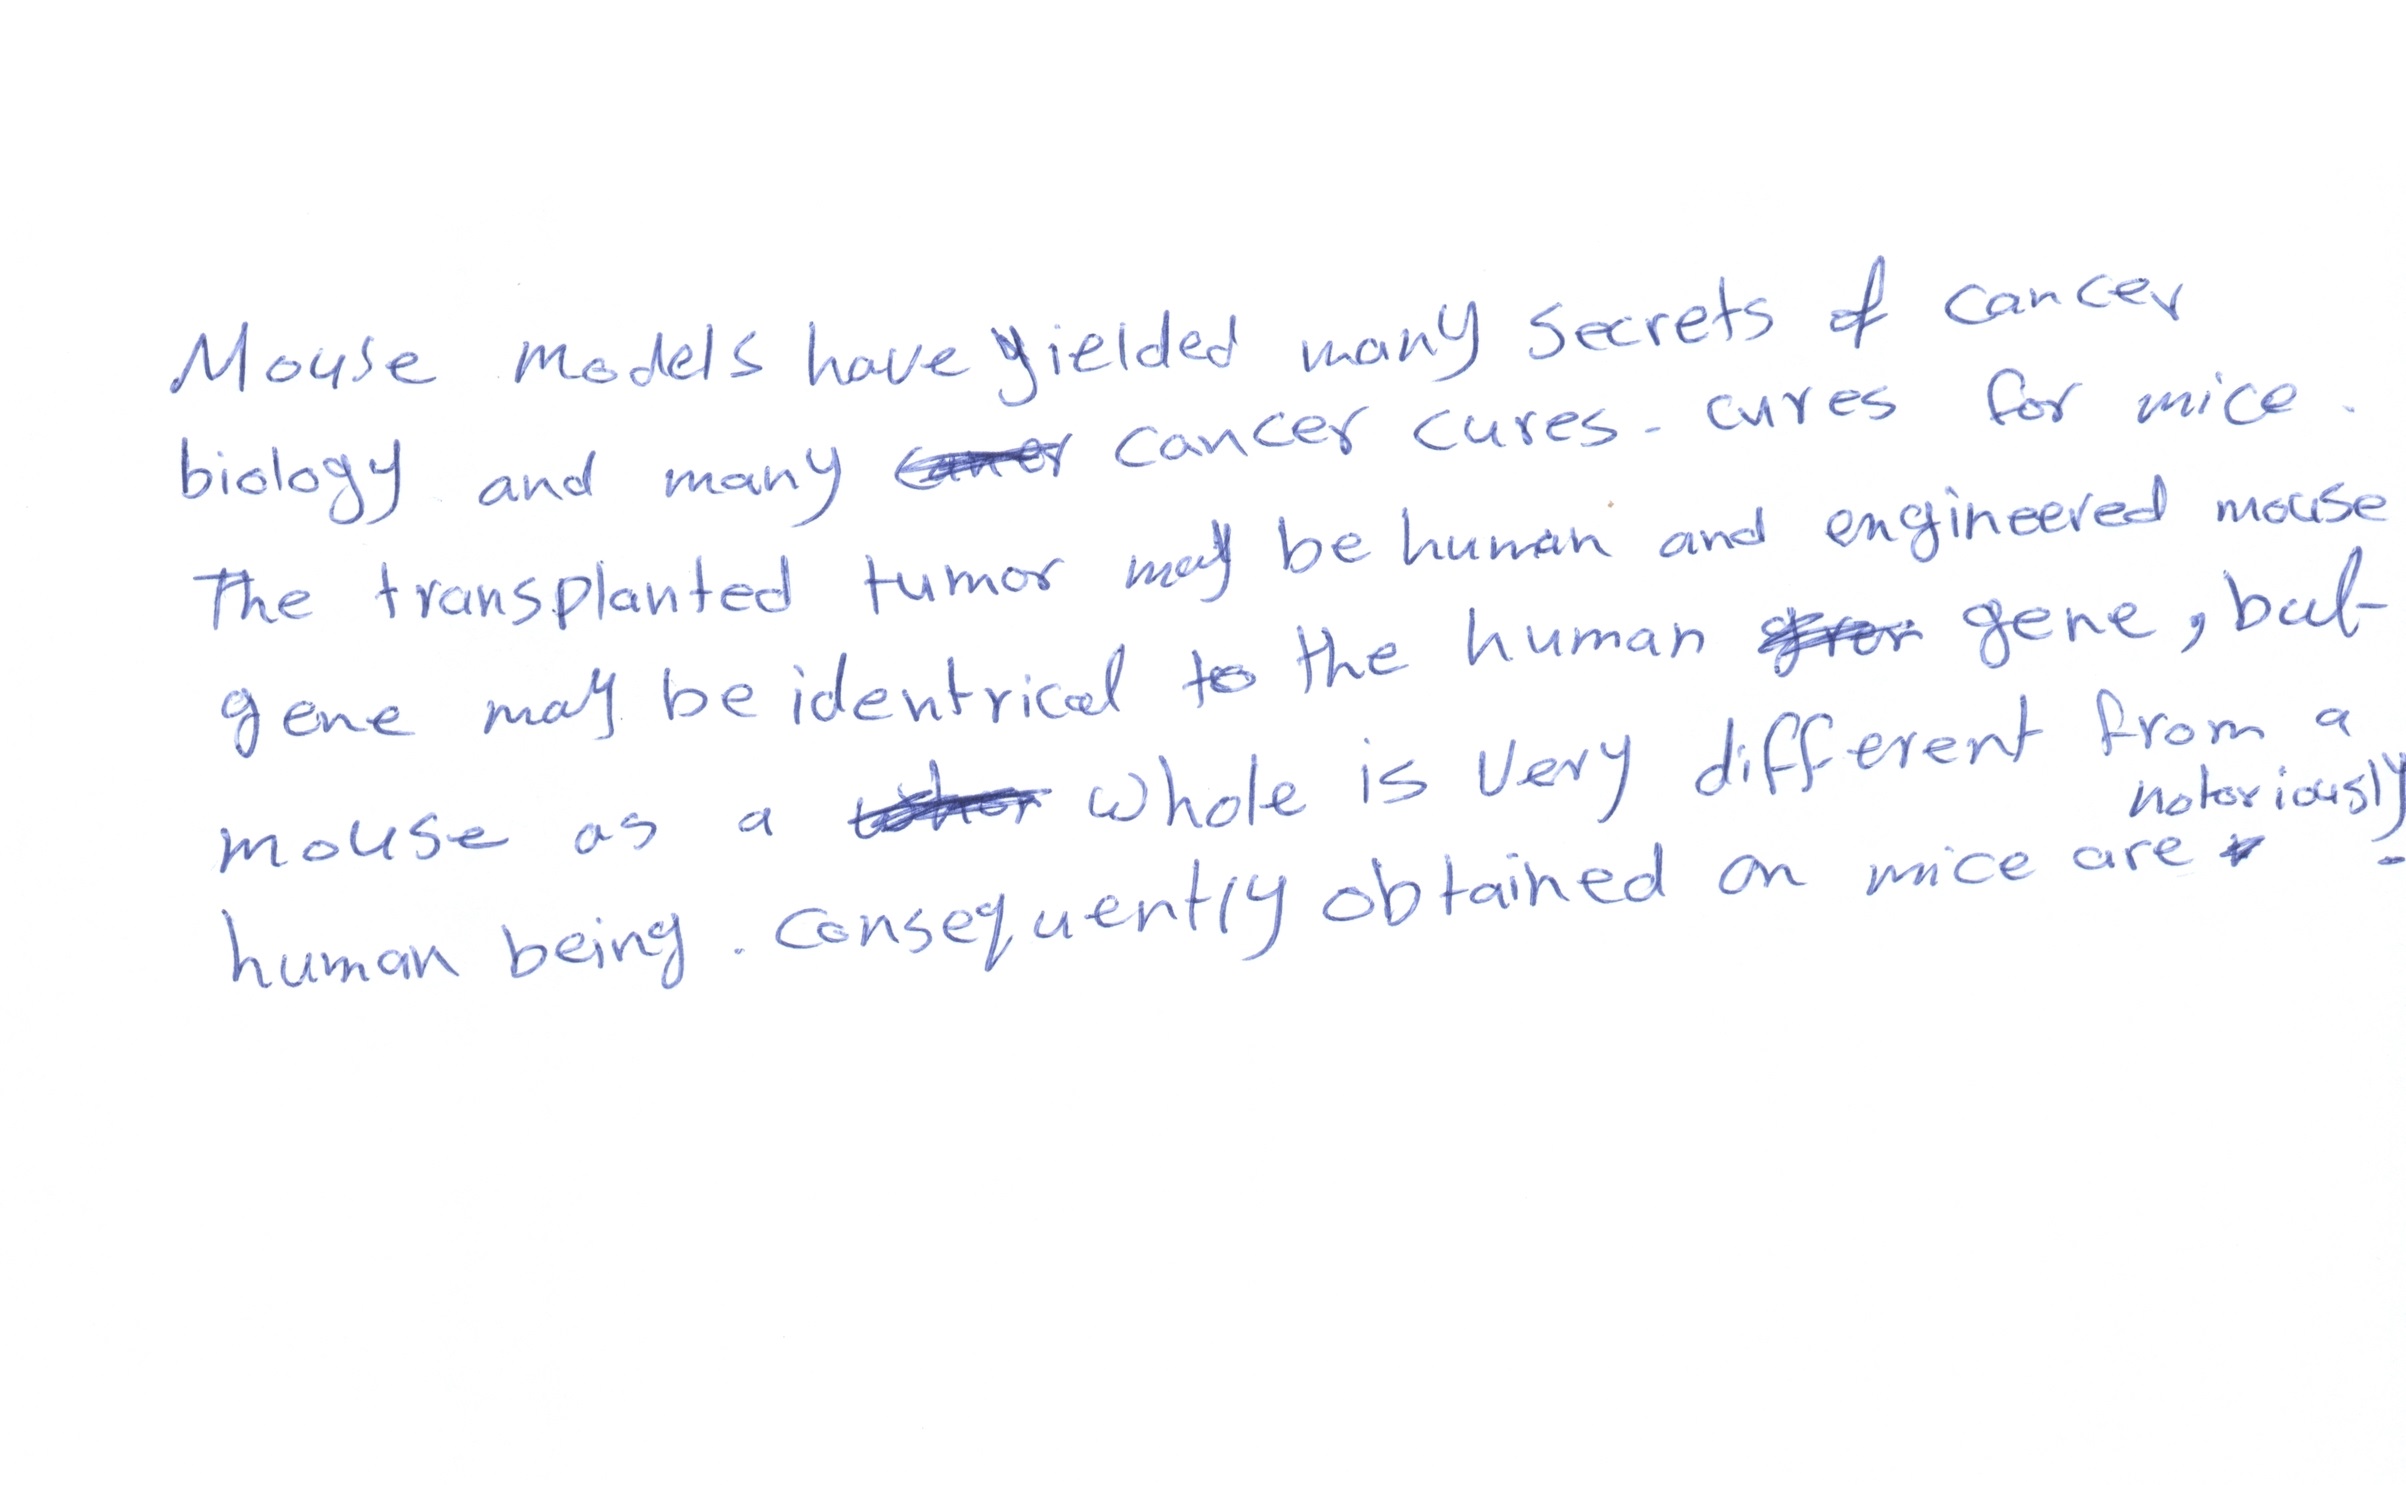 Mouse models have yielded many secrets of cancer
biology and many cancer cures. cures for mice.
The transplanted tumor may be human and engineered mouse
gene may be identrical to the human gene, but
mouse as a whole is very different from a
notoriously
human being. Consequently obtained on mice are